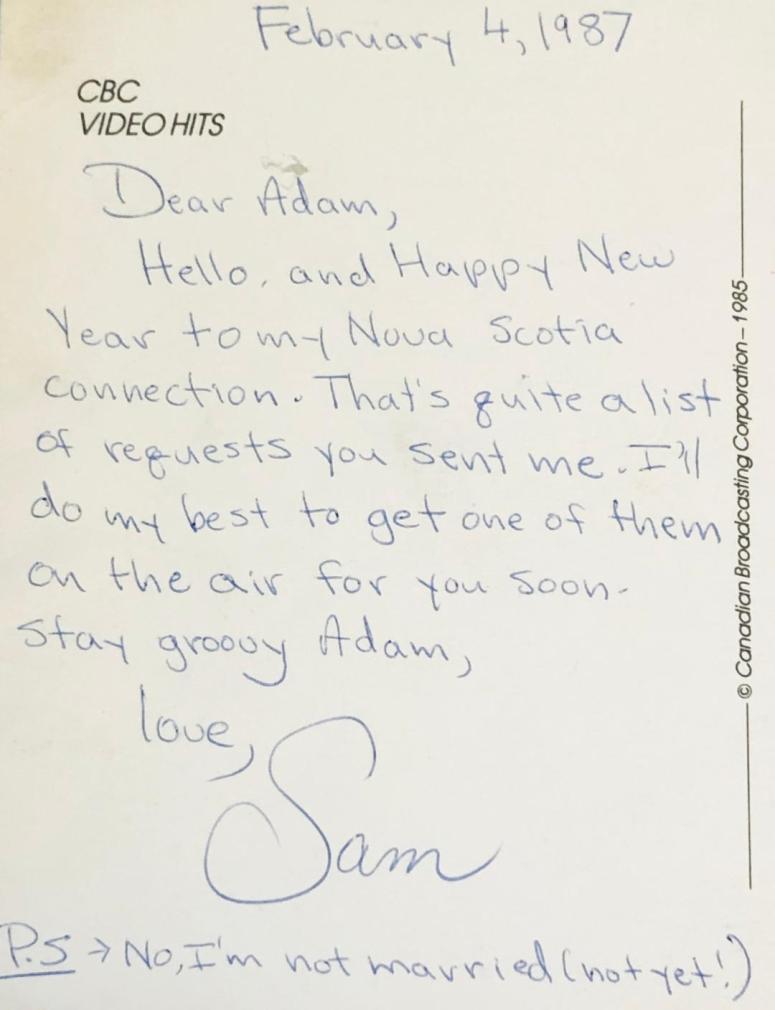 February 4, 1987
CBC
VIDEO HITS
Dear Adam,
Hello, and Happy New
Year to my Nova Scotia
connection. That's quite a list
of requests you sent me. I'll
do my best to get one of them
on the air for you soon.
Stay groovy Adam,
love,
Sam
P.S → No, I'm not married (not yet!)
© Canadian Broadcasting Corporation – 1985